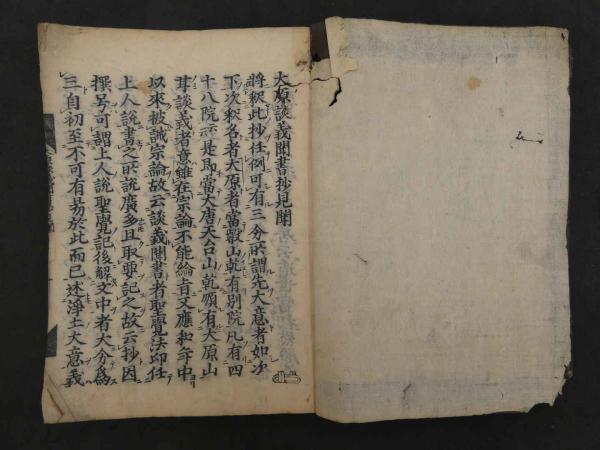 大原談義聞書抄見聞
將釈此抄任例可有三分所謂先大意者如次
下次釈名者大原者當叡山乾有別院凡有四
十八院云云是即當大唐天台山乾順有大原山
耳談義者意雖在宗論不能綸旨又應和年中
以來被誡宗論故云談義聞書者聖覺法印任
上人說書之所說廣多且取要記之故云抄因
撰号可謂上人說聖覺記後解文中者大分為
三自初至不可有易於此而已述淨土大意義